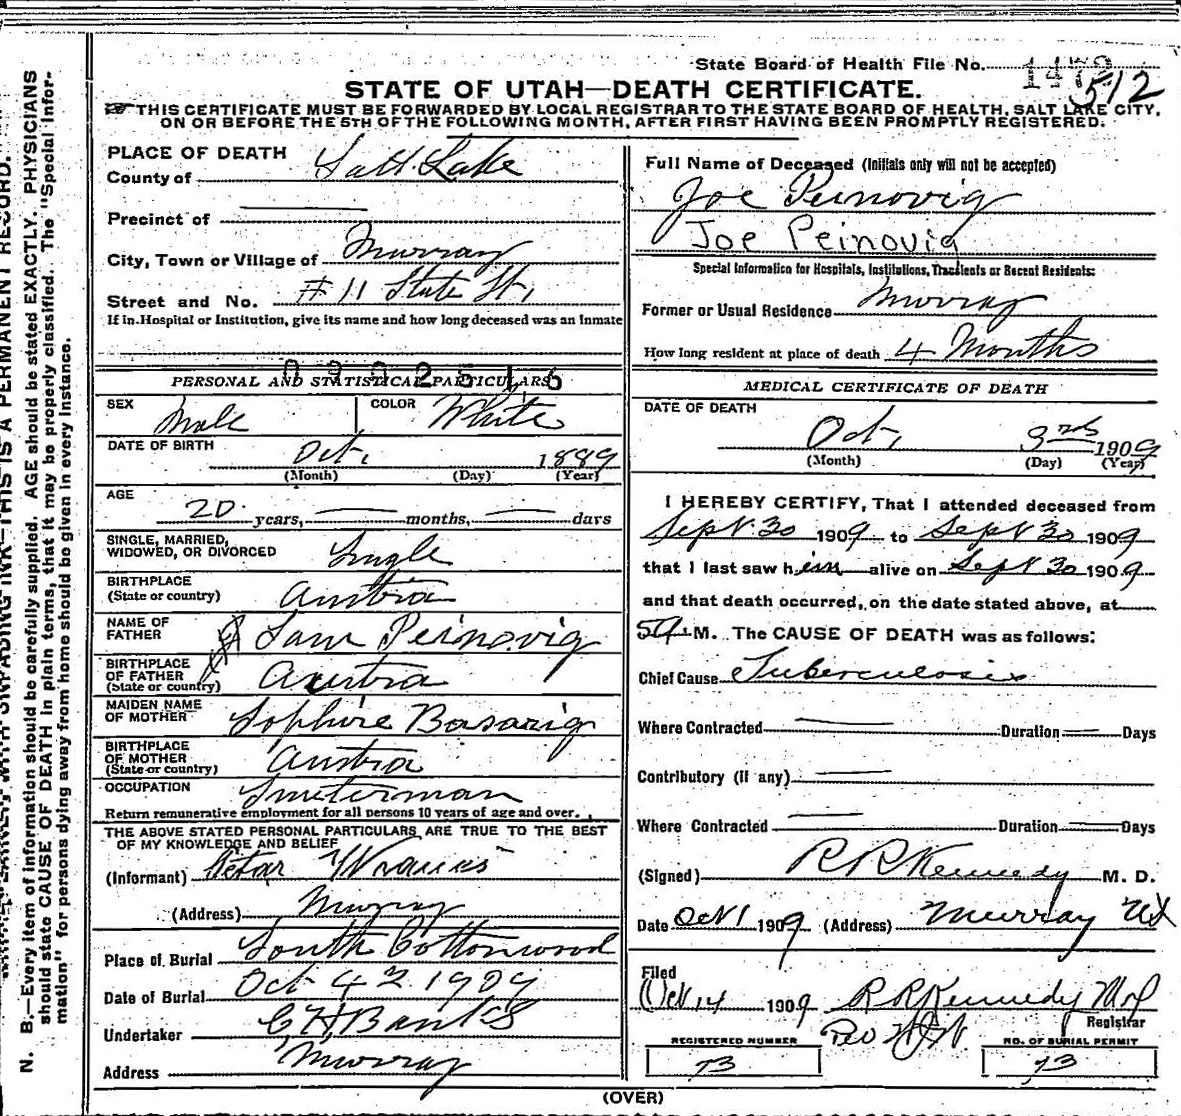 State Board of Health File No. 1472
512
STATE OF UTAH—DEATH CERTIFICATE.
THIS CERTIFICATE MUST BE FORWARDED BY LOCAL REGISTRAR TO THE STATE BOARD OF HEALTH, SALT LAKE CITY,
ON OR BEFORE THE 5TH OF THE FOLLOWING MONTH, AFTER FIRST HAVING BEEN PROMPTLY REGISTERED.
N. B—Every item of information should be carefully supplied. AGE should be stated EXACTLY. PHYSICIANS
should state CAUSE OF DEATH in plain terms, that it may be properly classified. The "Special Infor-
mation" for persons dying away from home should be given in every instance.
THIS IS A PERMANENT RECORD.
PLACE OF DEATH
County of Salt Lake
Precinct of
City, Town or Village of Murray
Street and No. #11 State St,
If in Hospital or Institution, give its name and how long deceased was an inmate
PERSONAL AND STATISTICAL PARTICULARS
SEX Male COLOR White
DATE OF BIRTH Oct, 1889
(Month) (Day) (Year)
AGE
20 years, months, days
SINGLE, MARRIED,
WIDOWED, OR DIVORCED Single
BIRTHPLACE
(State or country) Austria
NAME OF
FATHER Sam Peinovig
BIRTHPLACE
OF FATHER
(State or country) Austria
MAIDEN NAME
OF MOTHER Sophire Basarig
BIRTHPLACE
OF MOTHER
(State or country) Austria
OCCUPATION Smelterman
Return remunerative employment for all persons 10 years of age and over.
THE ABOVE STATED PERSONAL PARTICULARS ARE TRUE TO THE BEST
OF MY KNOWLEDGE AND BELIEF
(Informant) Petar
(Address) Murray
Place of Burial South Cottonwood
Date of Burial Oct 4 1909
Undertaker C H Banks
Address Murray
Full Name of Deceased (Initials only will not be accepted)
Joe Peinovig
Joe Peinovig
Special Information for Hospitals, Institutions, Transients or Recent Residents:
Former or Usual Residence Murray
How long resident at place of death 4 Months
MEDICAL CERTIFICATE OF DEATH
DATE OF DEATH
Oct, 3rd 1909
(Month) (Day) (Year)
I HEREBY CERTIFY, That I attended deceased from
Sept 30 1909 to Sept 30 1909
that I last saw him alive on Sept 30 1909
and that death occurred, on the date stated above, at
5 A. M. The CAUSE OF DEATH was as follows:
Chief Cause Tuberculosis
Where Contracted Duration Days
Contributory (if any)
Where Contracted Duration Days
(Signed) R R Kennedy M. D.
Date Oct 1 1909 (Address) Murray Ut
Filed
Oct 14 1909 R R Kennedy M D
Registrar
REGISTERED NUMBER
73
NO. OF BURIAL PERMIT
73
(OVER)